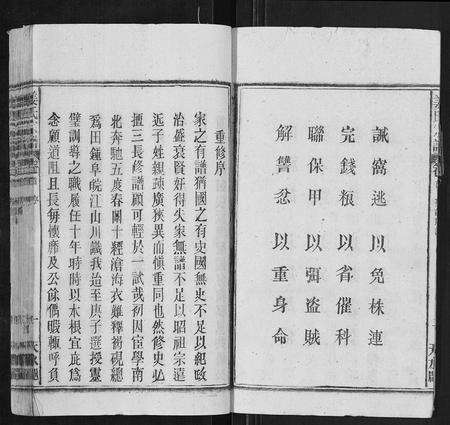 誡窩逃以免株連
完錢糧以省催科
聯保甲以弭盜賊
解讐忿以重身命
重修序
家之有譜猶國之有史國無史不足以紀政
治盛衰賢奸得失家無譜不足以昭祖宗遠
近子姓親疎廣狹異而慎重同也然修史必
擅三長修譜顧可輕於一試哉初因宦學南
北奔馳五度春闈十經滄海衣雖釋褐硯總
爲田鍾阜皖江山川識我迨至庚子選授靈
璧訓導之職履任十年時時以木根宜庇爲
念顧道阻且長每懷靡及公餘偶暇輒呼負